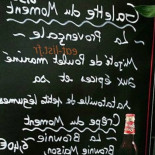 Galette du Moment
~ La Provençale ~
Mijoté de Poulet mariné
aux épices et sa
ratatouille de petits légumes
Crêpe du Moment
~ La Bounie
Bounie Maison
5,40€
eat-list.fr